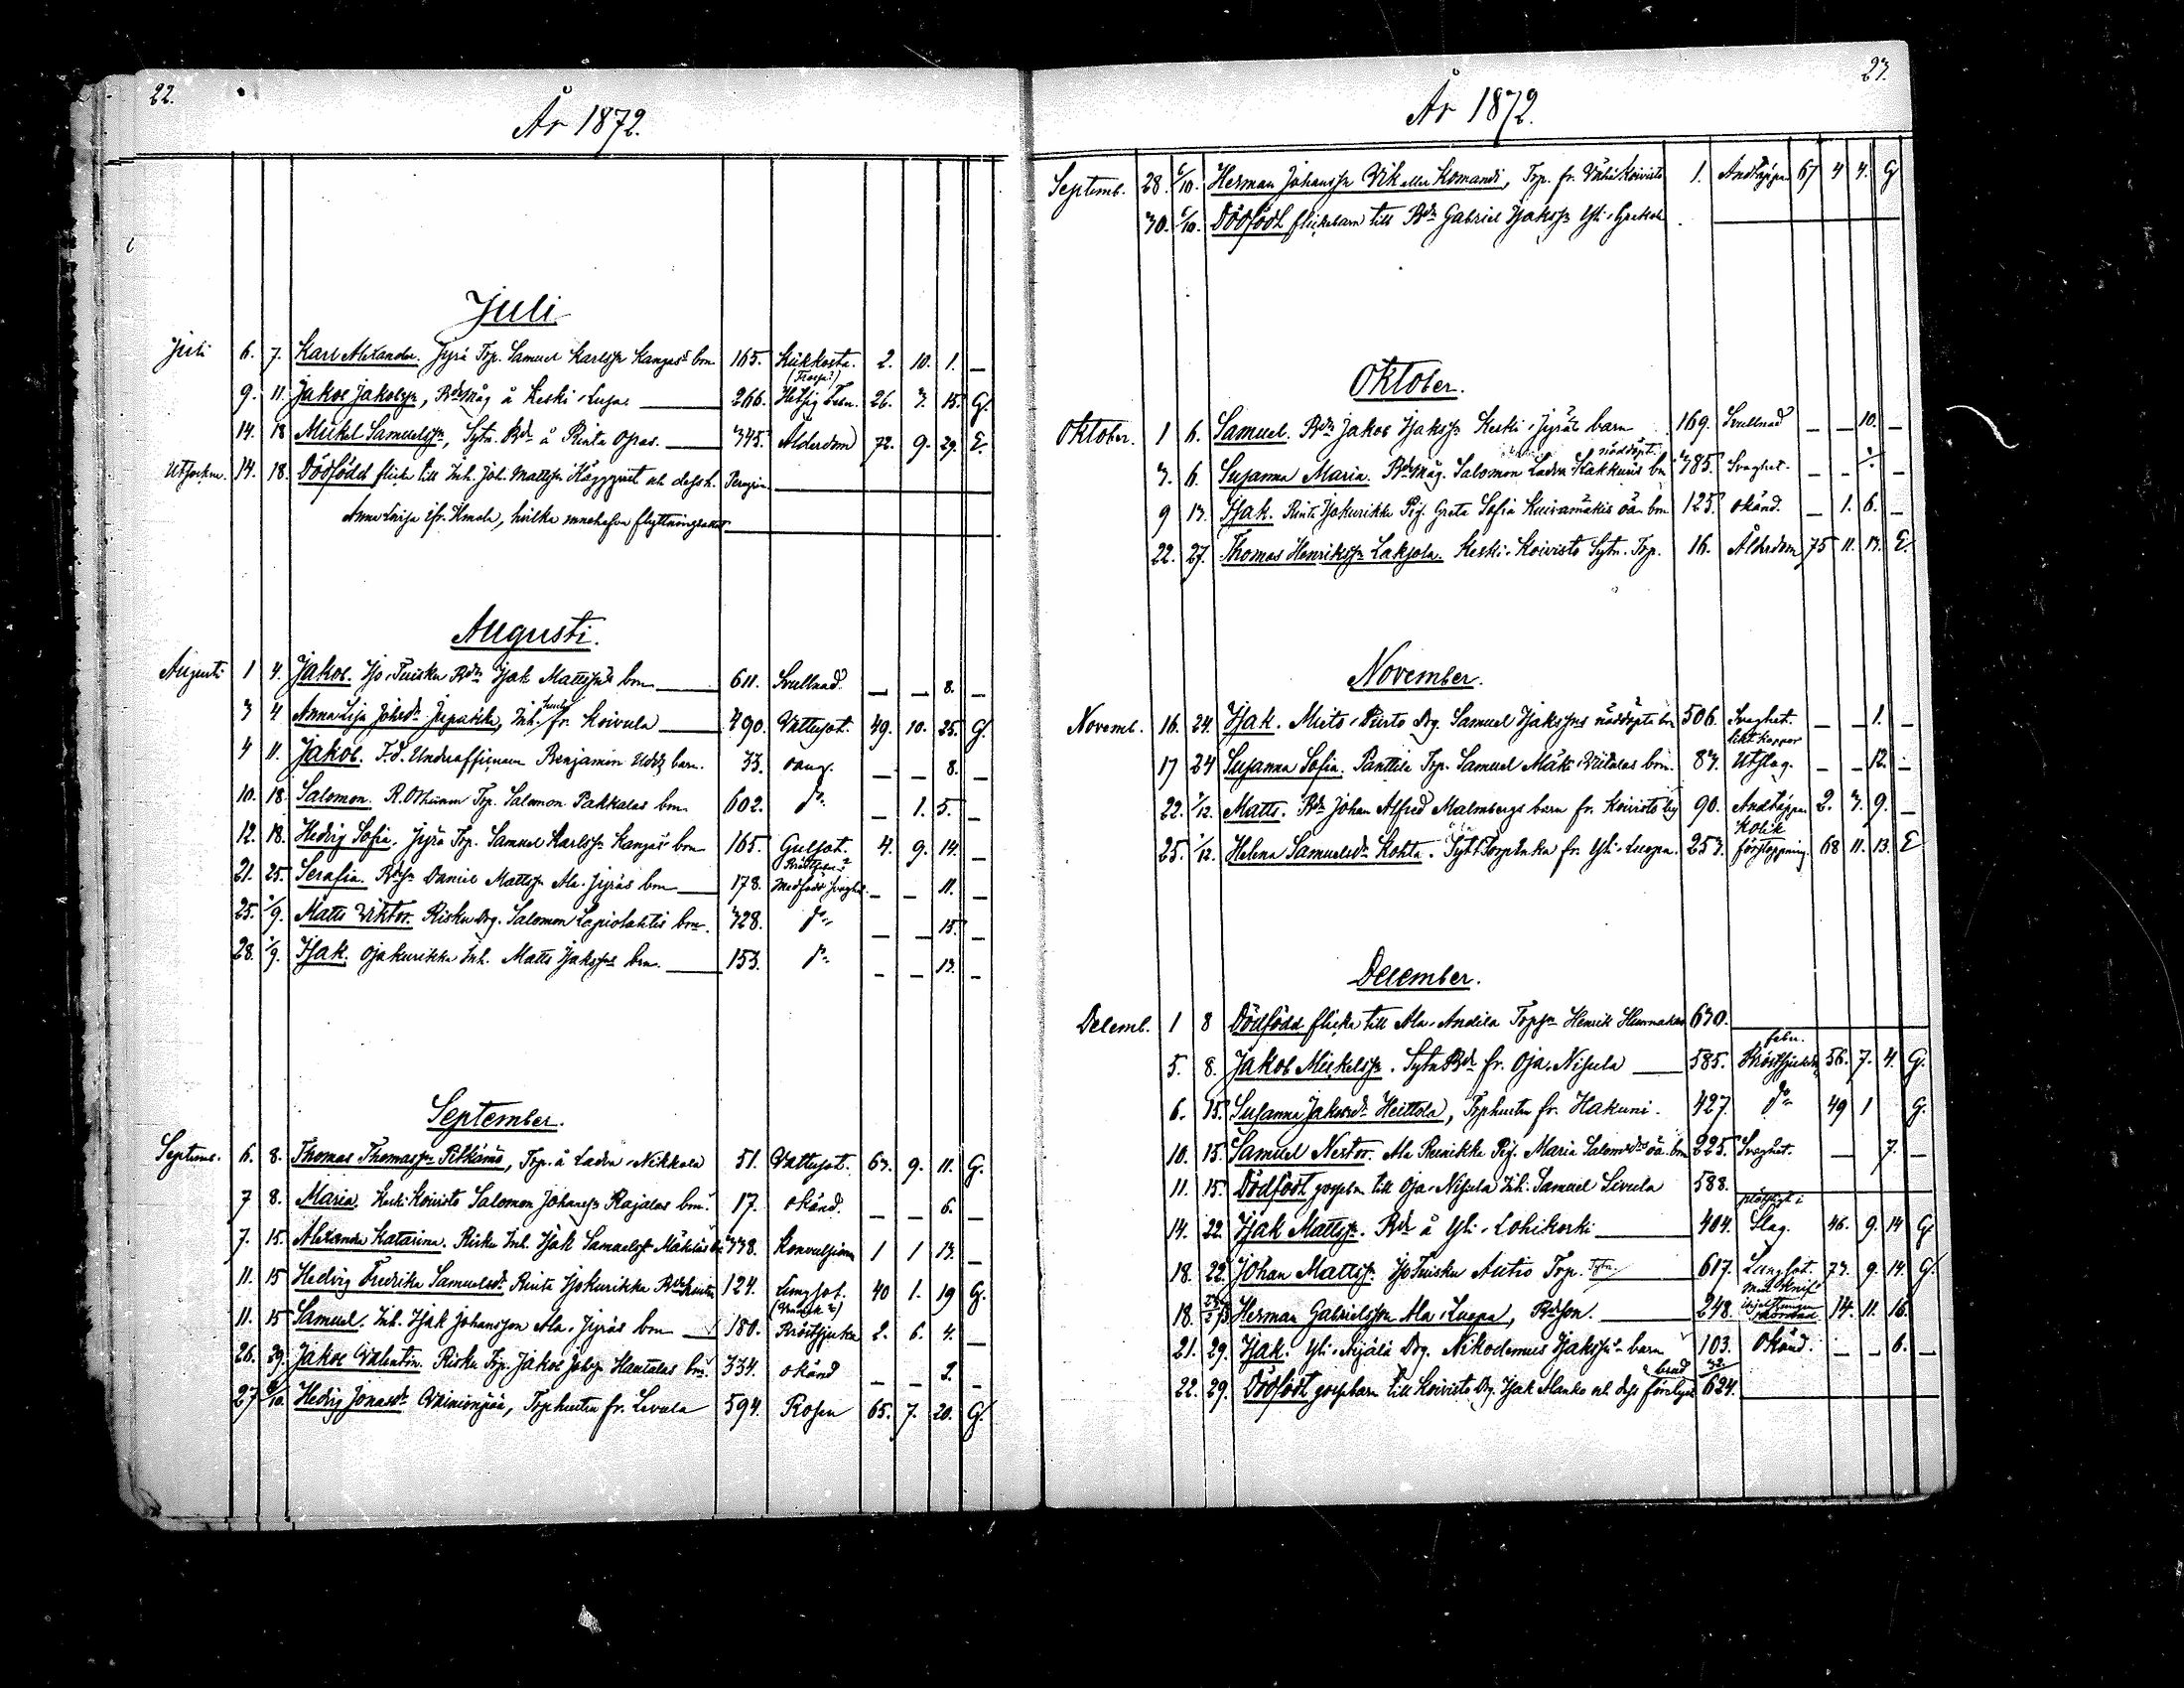 22.
År 1872.
Juli
Juli 6. 7. Karl Alexander. Jyrä Trp. Samuel Karlssn Kangas brn. 165. Kikhosta. 2. 10. 1. —
9. 11. Jakob Jakobssn, Bdemåg å Keski-Luopa 266. Hetsig Feber. 26. 3. 15. G.
14. 18 Mickel Samuelssn, Sytn. Bde å Rinta Opas. 345. Ålderdom 72. 9. 29. E.
Utsockne. 14. 18. Dödfödd flicka till Inh. Joh. Mattssn och dess h.
Anna Lovisa ifr. Ilmola, hvilka innehafva flyttningsattest
Augusti.
Augusti 1 4. Jakob. Iso-Turisku Bde Isak Mattssns brn 611. Svullnad. — — 8. —
3 4 Anna Lisa Johsdr Inh. hust. fr. Koivula 490. Vattusot. 49. 10. 25. G.
4 11. Jakob. F.d. Underofficeren Benjamin barn. 33. — — 8. —
10. 18. Salomon. Trp. Salomon Pakkalas brn 602. do — 1. 5. —
12. 18. Hedvig Sofia. Jyrä Trp. Samuel Karlssn Kangas brn 165. Gulsot. 4. 9. 14. —
21. 25. Serafia. Daniel Mattssn Ala-Jyräs brn 178. Medfödd svaghet. — — 11. —
25. 1/9. Matts Viktor. Risku Drg. Salomon Lapiolahtis brn. 328. do — — 15. —
28. 1/9. Isak. Ojakurikka Inh. Matts Isakssns brn. 153. do — — 13. —
September.
Septemb. 6. 8. Thomas Thomassn Pitkämö, Trp. å Ladu-Nikkola 51. Vattusot. 63. 9. 11. G.
7 8. Maria. Keski-Koivisto Salomon Johanssn Rajalas brn. 17. okänd. — — 6. —
7. 15. Alexandra Katarina. Risku Inh. Isak Samuelssn Mäkiläs 338. Konvulsioner 1 1 13. —
11. 15 Hedvig Fredrika Samuelsdr. Rinta Jyskurikka Bdehustru 124. Lungsot. 40 1. 19 G.
11. 15 Samuel. Inh. Isak Johansson Ala-Jyräs brn 180. Bröstsjuka 2. 6. 4. —
26. 29. Jakob Valentin. Risku Trp. Jakob Johssn Hautalas brn. 334. okänd — — 2. —
27 6/10. Hedvig Jonasdr Vainionpää, Trphustru fr. Levula 594. Rosen 65. 7. 20. G.
23.
År 1872.
Septemb. 28. 6/10. Herman Johanssn Vik eller Komandi, Trp. fr. Koivisto 1. Andtäppa 67 4 4. G
30. 6/10. Dödfödt flickebarn till Bde Gabriel Isakssn Yli-
Oktober.
Oktober. 1 6. Samuel. Bde Jakob Isakssn Keski-Jyräs barn 169. Svullnad — — 10. —
nöddöpt.
3. 6. Susanna Maria. Bdemåg. Salomon Ladu Hakkunis bn 385. Svaghet. — — —
9 13. Isak. Rinta Jyskurikka Pig. Greta Sofia Kuivamäkis oä. brn 125. okänd. — 1. 6. —
22. 27. Thomas Henrikssn Laksola. Keski-Koivisto Sytn. Trp. 16. Ålderdom 75 11. 13. E.
November.
Novemb. 16. 24. Isak. Mieto-Piirto Drg. Samuel Isakssns nöddöpte bn 506. Svaghet. — — 1. —
17 24 Susanna Sofia. Panttila Trp. Samuel Mäki-Viitalas brn. 83. likt koppor Utslag. — — 12. —
22. 1/12. Matts. Bde Johan Alfred Malmbergs barn fr. Koivisto by 90. Andtäppa 2. 3. 9. —
25. 1/12. Helena Samuelsdr Kohta. Sytn Torpenka fr. Yli-Luopa. 253. Kolik förstoppning. 68 11. 13. E
December.
Decemb. 1 8 Dödfödd flicka till Ala-Andila Henrik 630.
5. 8. Jakob Mickelssn. Sytn Bde fr. Oja-Nisula 585. Bröstsjuka 56. 7. 4. G.
6. 15. Susanna Jakobsdr Heittola, Trphustru fr. Hakuni. 427. do 49 1 G.
10. 15. Samuel Nestor. Ala Reinikka Pig. Maria Salomsdrs oä. brn 225. Svaghet. — 7. —
11. 15. Dödfödt gossebn till Oja-Nisula Inh. Samuel Sivula 588.
14. 22. Isak Mattssn. Bde å Yli-Lohikoski 404. plötsligt i Slag. 46. 9. 14 G
18. 22. Johan Mattssn. Iso Turisku Autio Trp. Sytn. 617. Lungsot. 73. 9. 14. G.
18. Herman Gabrielsson Ala-Luopa, Bdeson. 248. Med knif ihjelstungen 14. 11. 16.
21. 29. Isak. Yli-Äijälä Drg. Nikodemus Isakssns barn 103. Okänd. — — 6. —
22. 29. Dödfödt gossebarn till Koivisto Drg. Isak Alanko och dess förelagde brud 32. 624.